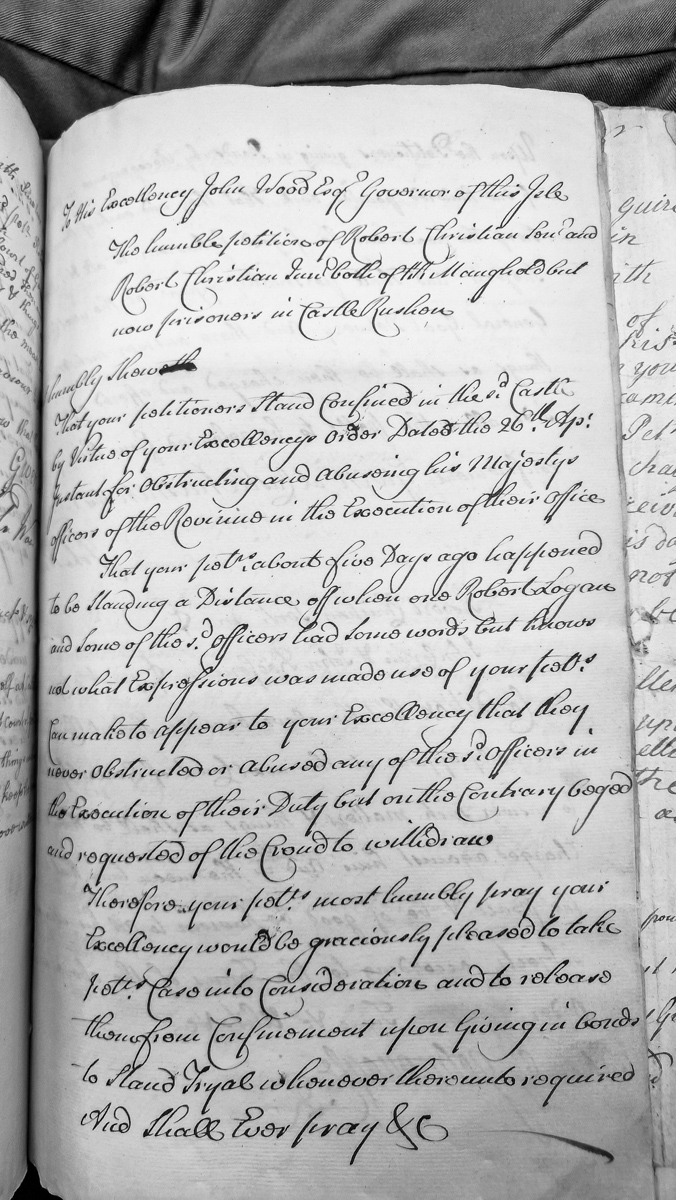 To His Excellency John Wood Esqr Governor of this Isle
The humble petition of Robert Christian Senr and
Robert Christian Junr both of KK Maughold but
now prisoners in Castle Rushen
humbly Sheweth
That your petitioners Stand Confined in the sd Castle
by Virtue of your Excellencys Order Dated the 26th Apr
Instant for Obstructing and Abuseing his Majestys
officers of the Revinue in the Execution of their office
That your petrs about five Days ago happened
to be Standing a Distance off when one Robert Logan
and some of the sd officers had some words but knows
not what Expressions was made use of your petrs
Can make to appear to your Excellency that they
never Obstructed or abused any of the sd Officers in
the Execution of their Duty but on the Contrary beged
and requested of the Croud to withdraw
Therefore your petrs most humbly pray your
Excellency would be graciously pleased to take
petrs Case into Consideration and to release
them from Confinement upon Giving in bonds
to Stand Tryal whenever thereunto required
And Shall Ever pray &C